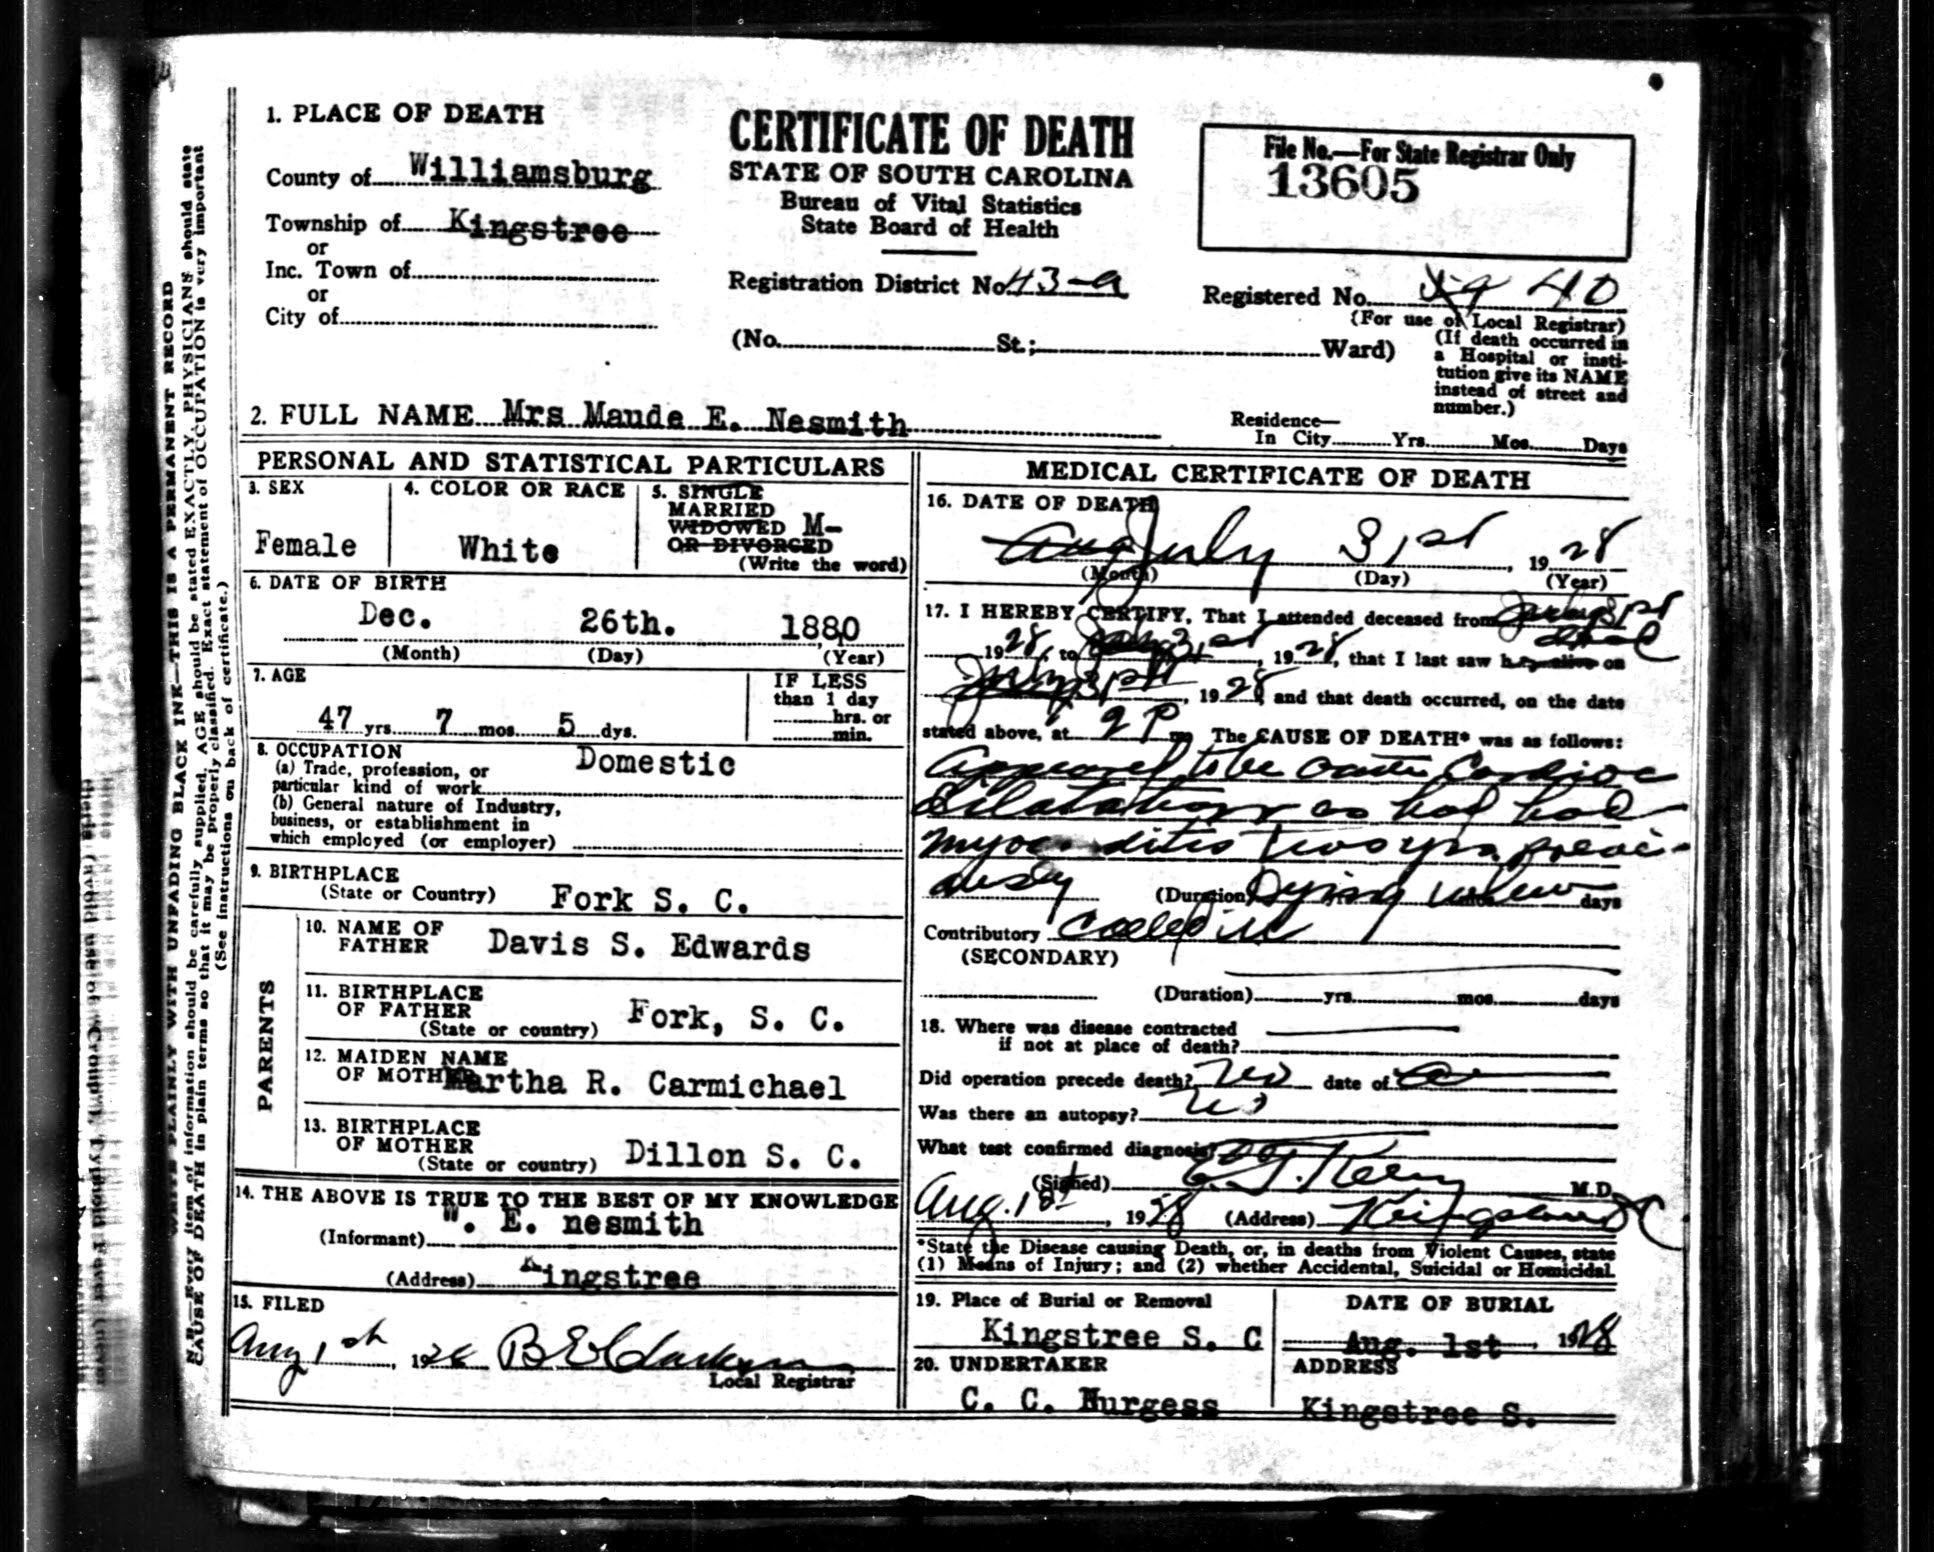 1. PLACE OF DEATH
County of Williamsburg
Township of Kingstree
or
Inc. Town of
or
City of
CERTIFICATE OF DEATH
STATE OF SOUTH CAROLINA
Bureau of Vital Statistics
State Board of Health
Registration District No. 43-a
(No. St.; Ward)
File No.—For State Registrar Only
13605
Registered No. 40
(For use of Local Registrar)
(If death occurred in
a Hospital or insti-
tution give its NAME
instead of street and
number.)
2. FULL NAME Mrs Maude E. Nesmith
Residence—
In City Yrs. Mos. Days
PERSONAL AND STATISTICAL PARTICULARS
3. SEX
Female
4. COLOR OR RACE
White
5. SINGLE
MARRIED
WIDOWED M-
OR DIVORCED
(Write the word)
6. DATE OF BIRTH
Dec. 26th. 1880
(Month) (Day) (Year)
7. AGE
47 yrs. 7 mos. 5 dys.
IF LESS
than 1 day
hrs. or
min.
8. OCCUPATION Domestic
(a) Trade, profession, or
particular kind of work
(b) General nature of Industry,
business, or establishment in
which employed (or employer)
9. BIRTHPLACE
(State or Country) Fork S. C.
PARENTS
10. NAME OF
FATHER Davis S. Edwards
11. BIRTHPLACE
OF FATHER
(State or country) Fork, S. C.
12. MAIDEN NAME
OF MOTHER Martha R. Carmichael
13. BIRTHPLACE
OF MOTHER
(State or country) Dillon S. C.
14. THE ABOVE IS TRUE TO THE BEST OF MY KNOWLEDGE
(Informant) . E. nesmith
(Address) Kingstree
15. FILED
Aug 1st, 1928
Local Registrar
MEDICAL CERTIFICATE OF DEATH
16. DATE OF DEATH
Aug July 31st, 1928
(Month) (Day) (Year)
17. I HEREBY CERTIFY, That I attended deceased from July 31st
1928, to July 31st, 1928, that I last saw her alive on dead
July 31st, 1928, and that death occurred, on the date
stated above, at 9 P m. The CAUSE OF DEATH* was as follows:
Appeared to be acute Cardiac
dilatation as had had
myocarditis two yrs previ-
ously (Duration) Dying when days
Contributory called in
(SECONDARY)
(Duration) yrs. mos. days
18. Where was disease contracted
if not at place of death?
Did operation precede death? No date of
Was there an autopsy? No
What test confirmed diagnosis?
(Signed) M.D.
Aug. 1st, 1928 (Address) Kingstree S C
*State the Disease causing Death, or, in deaths from Violent Causes, state
(1) Means of Injury; and (2) whether Accidental, Suicidal or Homicidal.
19. Place of Burial or Removal
Kingstree S. C
DATE OF BURIAL
Aug. 1st, 1928
20. UNDERTAKER
C. C. Burgess
ADDRESS
Kingstree S.
WRITE PLAINLY WITH UNFADING BLACK INK—THIS IS A PERMANENT RECORD
N. B.—Every item of information should be carefully supplied. AGE should be stated EXACTLY. PHYSICIANS should state
CAUSE OF DEATH in plain terms so that it may be properly classified. Exact statement of OCCUPATION is very important
(See instructions on back of certificate.)